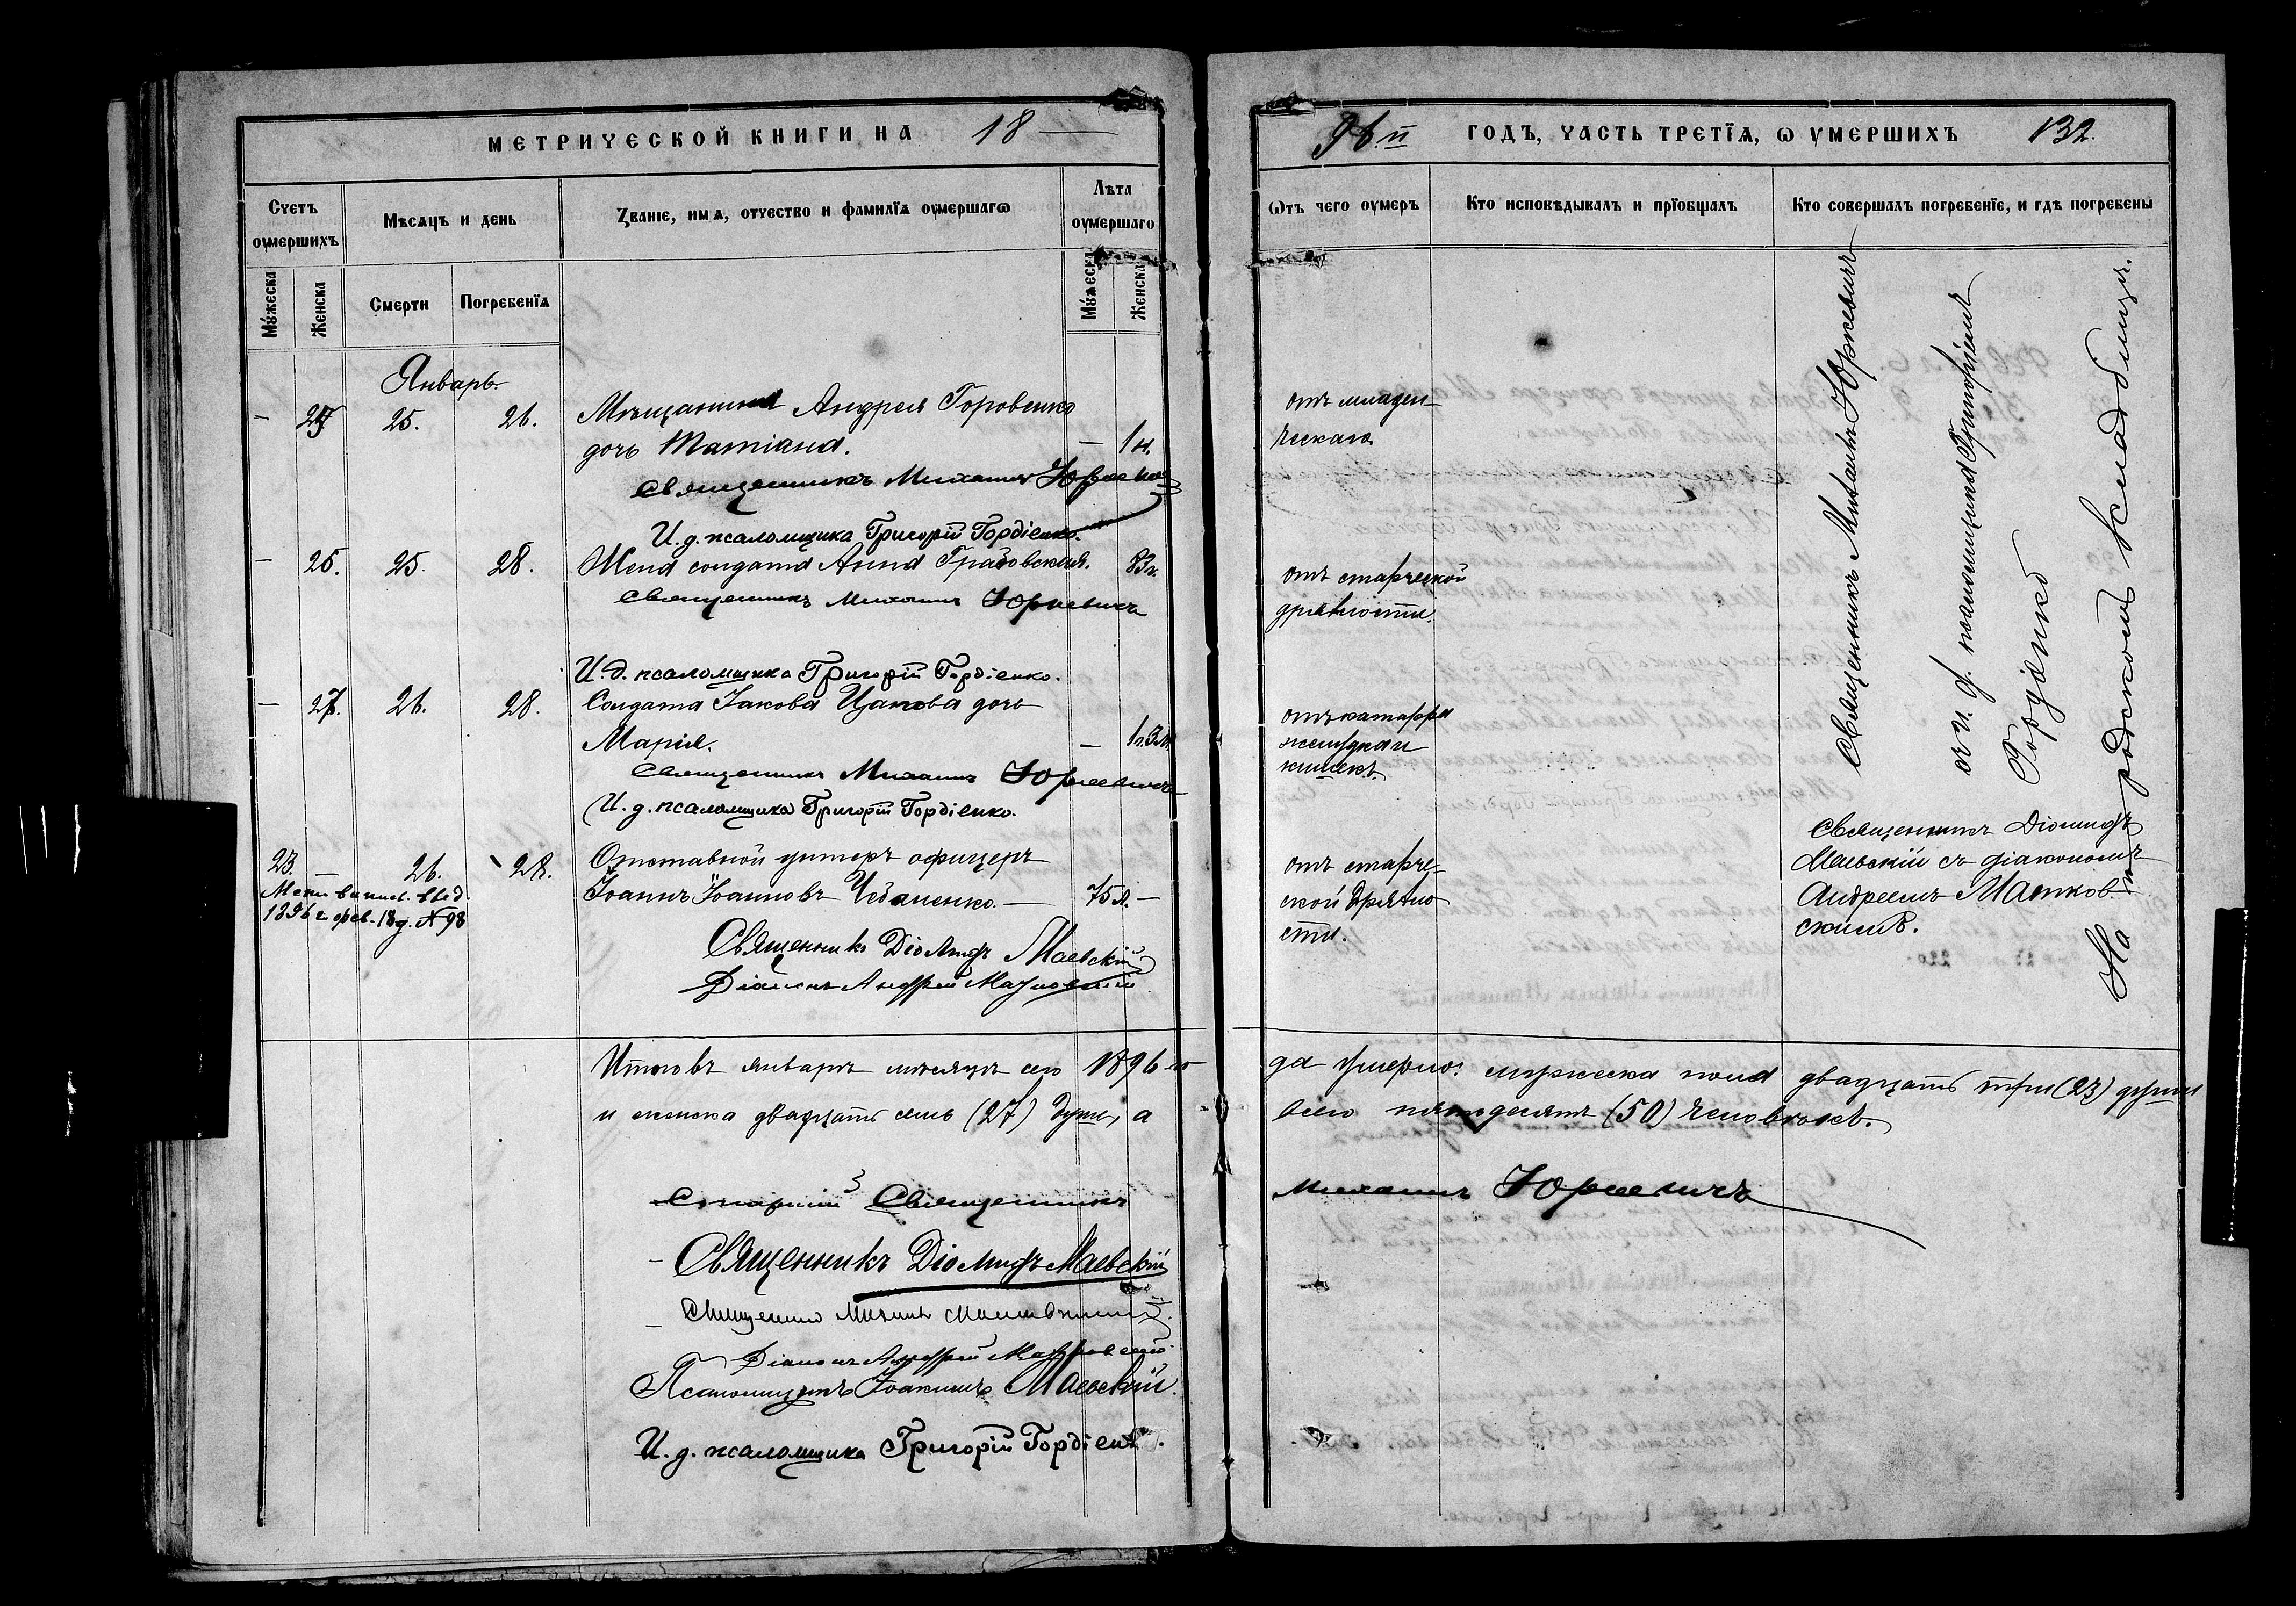 МЕТРИЧЕСКОЙ КНИГИ НА 18 —
Счетъ оумершихъ
Мѣсяцъ и день
Званіе, имѧ, отчество и фамилїѧ оумершагѡ
Лѣта оумершаго
Мꙋжеска
Женска
Смерти
Погребенїѧ
Мꙋжеска
Женска
Январь.
— 25. 26.
Мѣщанина Андрея Горовенко
дочь Татіана. — 1 н.
Священникъ Михаилъ Юркевичъ
И. д. псаломщика Григорій Гордіенко.
— 26. 25. 28. Жена солдата Анна Грабовская. 83 г.
Священникъ Михаилъ Юркевичъ
И. д. псаломщика Григорій Гордіенко.
— 27. 26. 28. Солдата Іакова Цапова дочь
Марія. — 1 г. 3 м.
Священникъ Михаилъ Юркевичъ
И. д. псаломщика Григорій Гордіенко.
23. — 26. 28. Отставной унтеръ офицеръ
Іоаннъ Іоанновъ Чебаненко. — 75 л. —
1896 г. фев. 18 д. № 98
Священникъ Діомидъ Маевскій
Діаконъ Андрей
Итого въ январѣ мѣсяцѣ сего 1896 го
и женска двадцать семь (27) душъ, а
Старшій Священникъ
Священникъ Діомидъ Маевскій
Діаконъ Андрей
Псаломщикъ Іоакимъ Маевскій.
И. д. псаломщика Григорій Гордіенко.
96 й ГОДЪ, ЧАСТЬ ТРЕТЇѦ, Ѡ ОУМЕРШИХЪ 132.
Ѿтъ чего оумеръ
Кто исповѣдывалъ и прїобщалъ
Кто совершалъ погребенїе, и гдѣ погребены
отъ младен-
ческаго
отъ старческой
дряхлости.
отъ катарра
желудка и
кишекъ.
отъ старче-
ской дряхло-
сти.
Священникъ Михаилъ Юркевичъ
съ и. д. псаломщика Григоріемъ
Гордіенко
Священникъ Діомидъ
Маевскій съ діакономъ
Андреемъ
скимъ.
На городскомъ кладбищѣ.
да умерло: мужеска пола двадцать три (23) души
всего пятьдесятъ (50) человѣкъ.
Михаилъ Юркевичъ